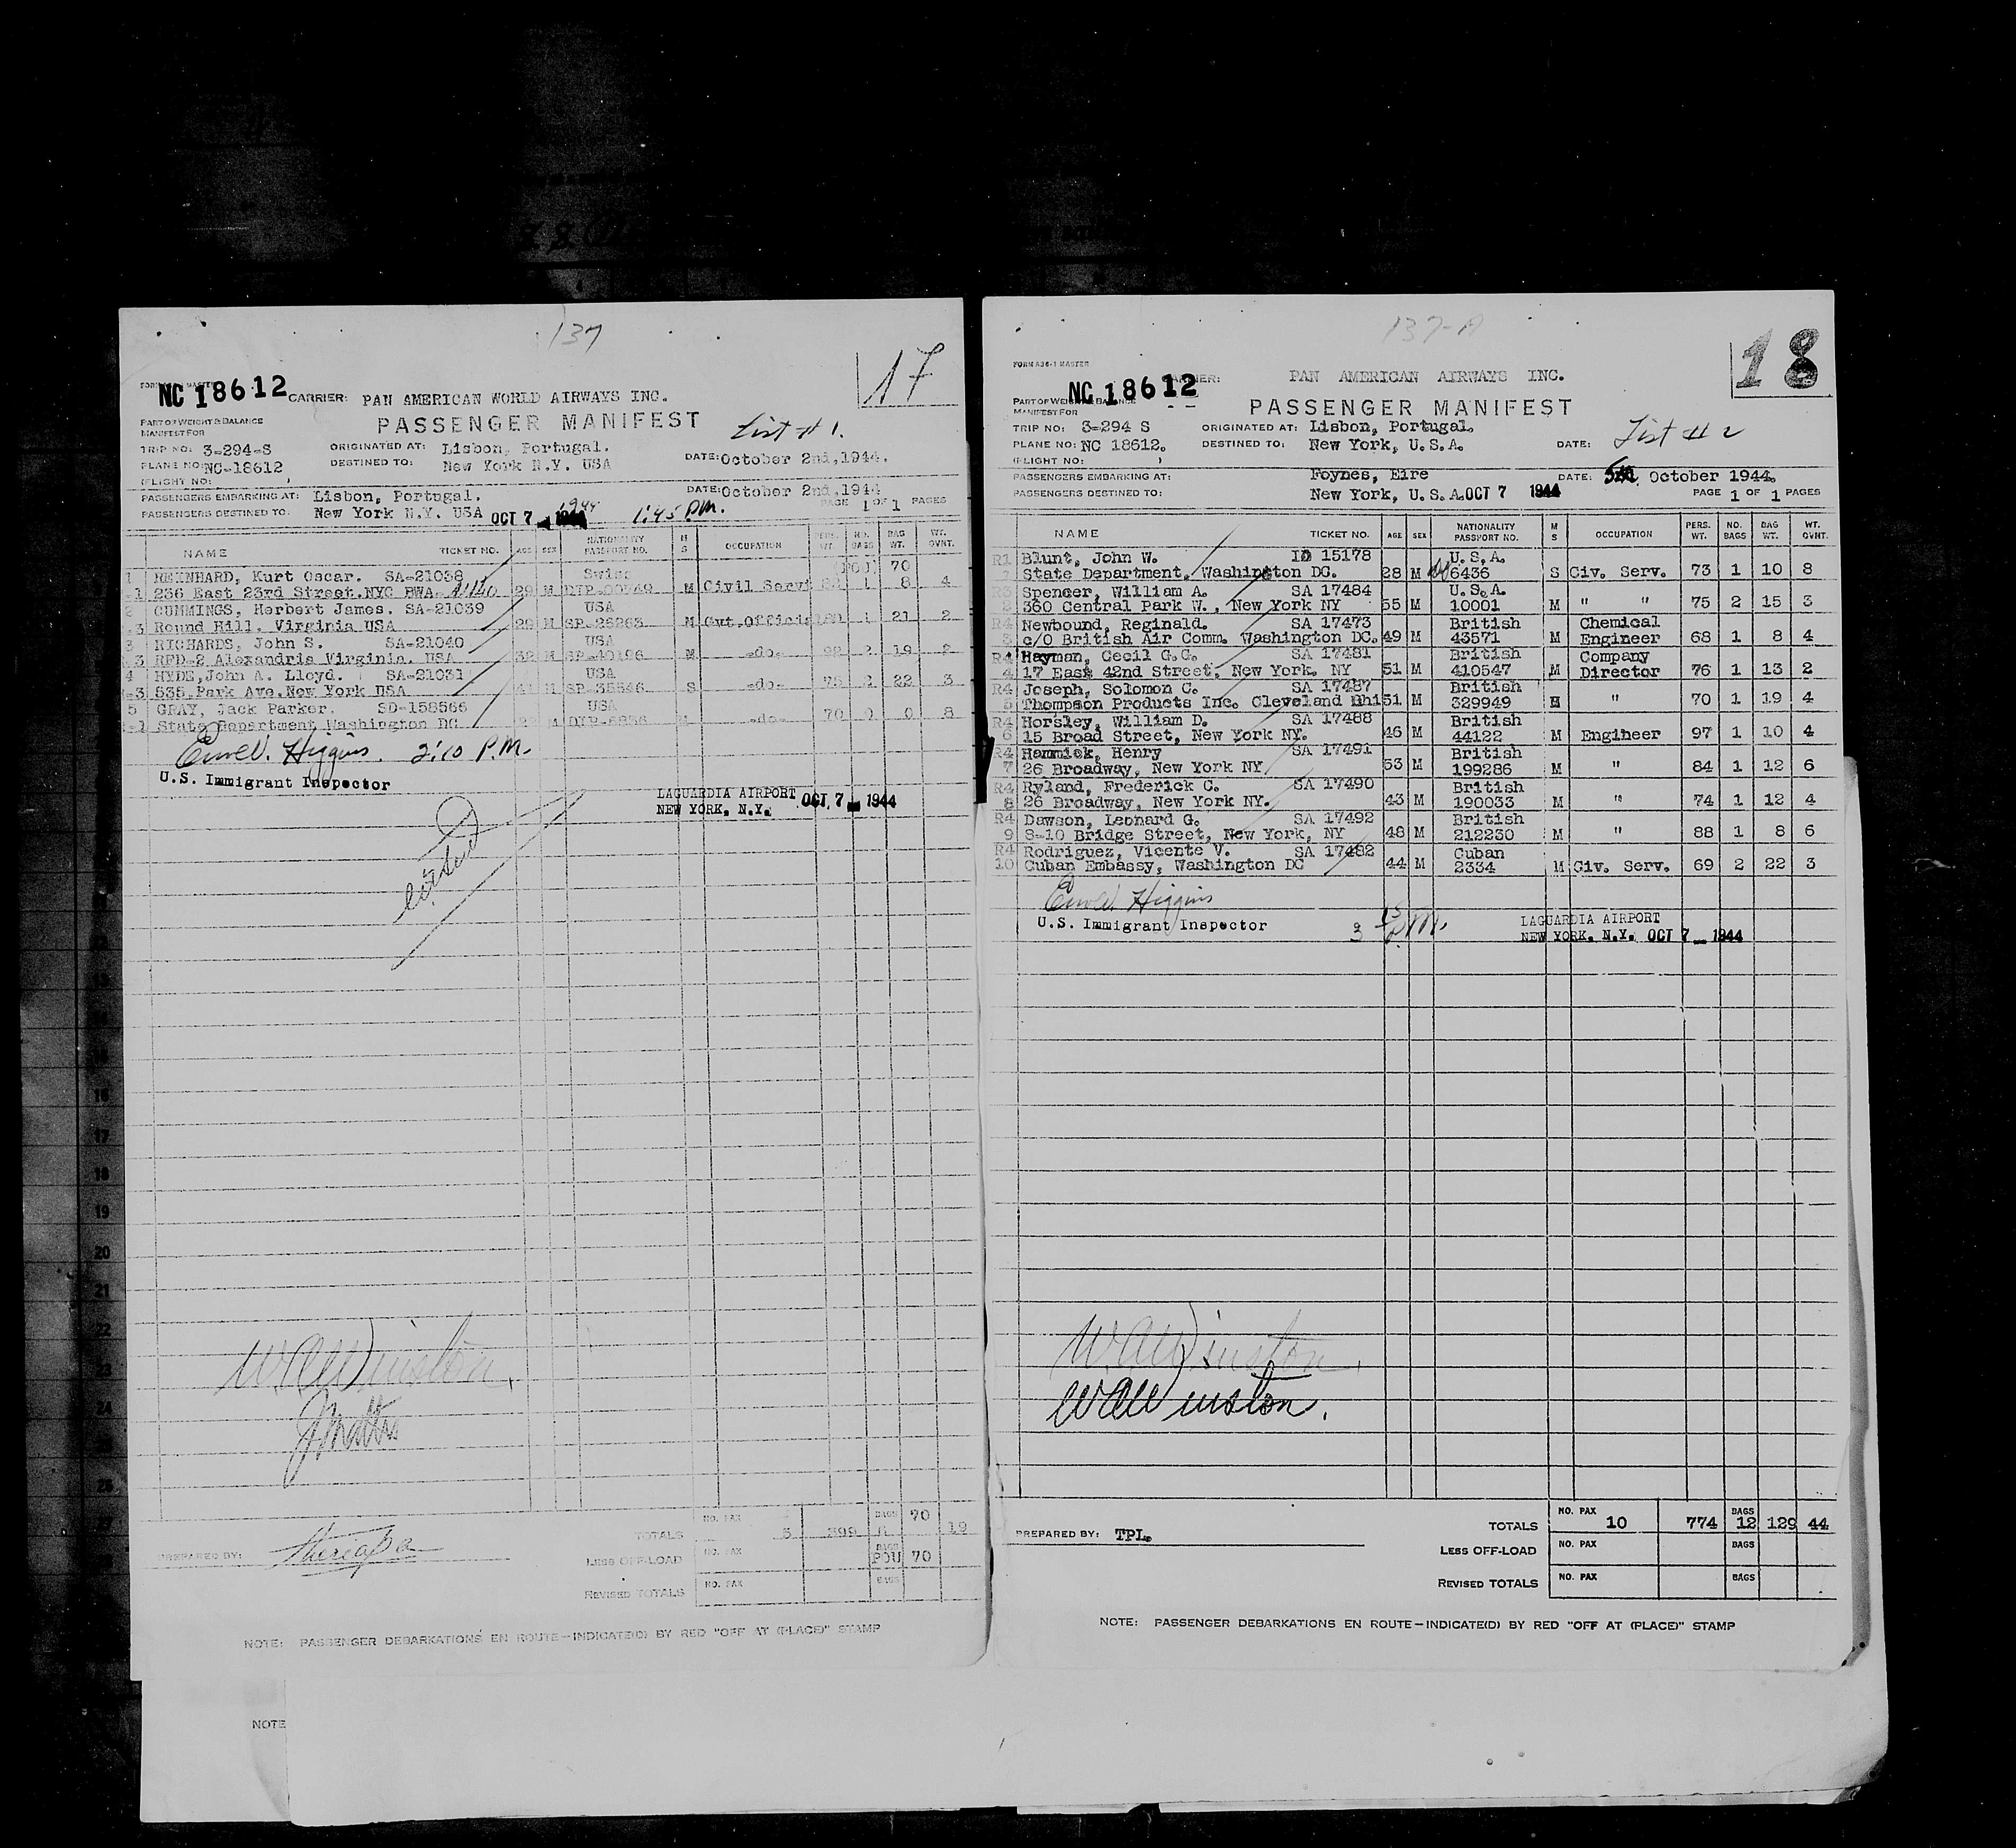 137
17
FORM MASTER
NC 18612
CARRIER: PAN AMERICAN WORLD AIRWAYS INC.
PASSENGER MANIFEST
List # 1.
PART OF WEIGHT & BALANCE
MANIFEST FOR
TRIP NO: 3-294-S ORIGINATED AT: Lisbon, Portugal.
PLANE NO: NC-18612 DESTINED TO: New York N.Y. USA DATE: October 2nd, 1944.
(FLIGHT NO: )
PASSENGERS EMBARKING AT: Lisbon, Portugal. DATE: October 2nd, 1944
PASSENGERS DESTINED TO: New York N.Y. USA OCT 7 1944 1:45 P.M. PAGE 1 OF 1 PAGES
NAME TICKET NO. AGE SEX NATIONALITY PASSPORT NO. M S OCCUPATION PERS. WT. NO. BAGS BAG WT. WT. OVNT.
1 REINHARD, Kurt Oscar. SA-21038 Swiss (POU) 70
236 East 23rd Street.NYC BWA 29 M M Civil Servi 1 8 4
2 CUMMINGS, Herbert James. SA-21039 USA
Round Hill, Virginia USA 29 M SP-26263 M Gvt.Officia 1 21 2
3 RICHARDS, John S. SA-21040 USA
RFD-2 Alexandria Virginia. USA 32 M SP-40196 M -do- 2 19 2
4 HYDE, John A. Lloyd. SA-21031 USA
535 Park Ave.New York USA 41 M SP-35546 S -do- 75 2 22 3
5 GRAY, Jack Parker. SD-158566 USA
State Department Washington DC. M -do- 70 0 0 8
Higgins. 2:10 P.M.
U.S. Immigrant Inspector
LAGUARDIA AIRPORT
NEW YORK, N.Y. OCT 7 1944
16
17
18
19
20
21
22
23
24
W.A. Winston.
TOTALS NO. PAX 5 399 BAGS 70 19
PREPARED BY:
LESS OFF-LOAD NO. PAX BAGS POU 70
REVISED TOTALS NO. PAX BAGS
NOTE: PASSENGER DEBARKATIONS EN ROUTE—INDICATE(D) BY RED "OFF AT (PLACE)" STAMP
NOTE
137-A
18
FORM A36-1 MASTER
NC 18612
CARRIER: PAN AMERICAN AIRWAYS INC.
PART OF WEIGHT & BALANCE
MANIFEST FOR
PASSENGER MANIFEST
TRIP NO: 3-294 S ORIGINATED AT: Lisbon, Portugal.
PLANE NO: NC 18612. DESTINED TO: New York, U.S.A. DATE: List # 2
(FLIGHT NO: )
PASSENGERS EMBARKING AT: Foynes, Eire DATE: 5th October 1944.
PASSENGERS DESTINED TO: New York, U.S.A. OCT 7 1944 PAGE 1 OF 1 PAGES
NAME TICKET NO. AGE SEX NATIONALITY PASSPORT NO. M S OCCUPATION PERS. WT. NO. BAGS BAG WT. WT. OVHT.
R1 Blunt, John W. ID 15178 U.S.A.
State Department, Washington DC. 28 M 6436 S Civ. Serv. 73 1 10 8
R3 Spencer, William A. SA 17484 U.S.A.
2 360 Central Park W., New York NY 55 M 10001 M " " 75 2 15 3
R4 Newbound, Reginald. SA 17473 British Chemical
3 c/o British Air Comm. Washington DC. 49 M 43571 M Engineer 68 1 8 4
R4 Hayman, Cecil G.C. SA 17481 British Company
4 17 East 42nd Street, New York. NY 51 M 410547 M Director 76 1 13 2
R4 Joseph, Solomon C. SA 17487 British
5 Thompson Products Inc. Cleveland Ohi 51 M 329949 M " 70 1 19 4
R4 Horsley, William D. SA 17488 British
6 15 Broad Street, New York NY. 46 M 44122 M Engineer 97 1 10 4
R4 Hammick, Henry SA 17491 British
7 26 Broadway, New York NY 53 M 199286 M " 84 1 12 6
R4 Ryland, Frederick C. SA 17490 British
8 26 Broadway, New York NY. 43 M 190033 M " 74 1 12 4
R4 Dawson, Leonard G. SA 17492 British
9 8-10 Bridge Street, New York, NY 48 M 212230 M " 88 1 8 6
R4 Rodriguez, Vicente V. SA 17482 Cuban
10 Cuban Embassy, Washington DC 44 M 2334 M Civ. Serv. 69 2 22 3
Higgins
U.S. Immigrant Inspector
LAGUARDIA AIRPORT
NEW YORK, N.Y. OCT 7 1944
W.A. Winston.
W.A. Winston.
TOTALS NO. PAX 10 774 BAGS 12 129 44
PREPARED BY: TPL.
LESS OFF-LOAD NO. PAX BAGS
REVISED TOTALS NO. PAX BAGS
NOTE: PASSENGER DEBARKATIONS EN ROUTE—INDICATE(D) BY RED "OFF AT (PLACE)" STAMP